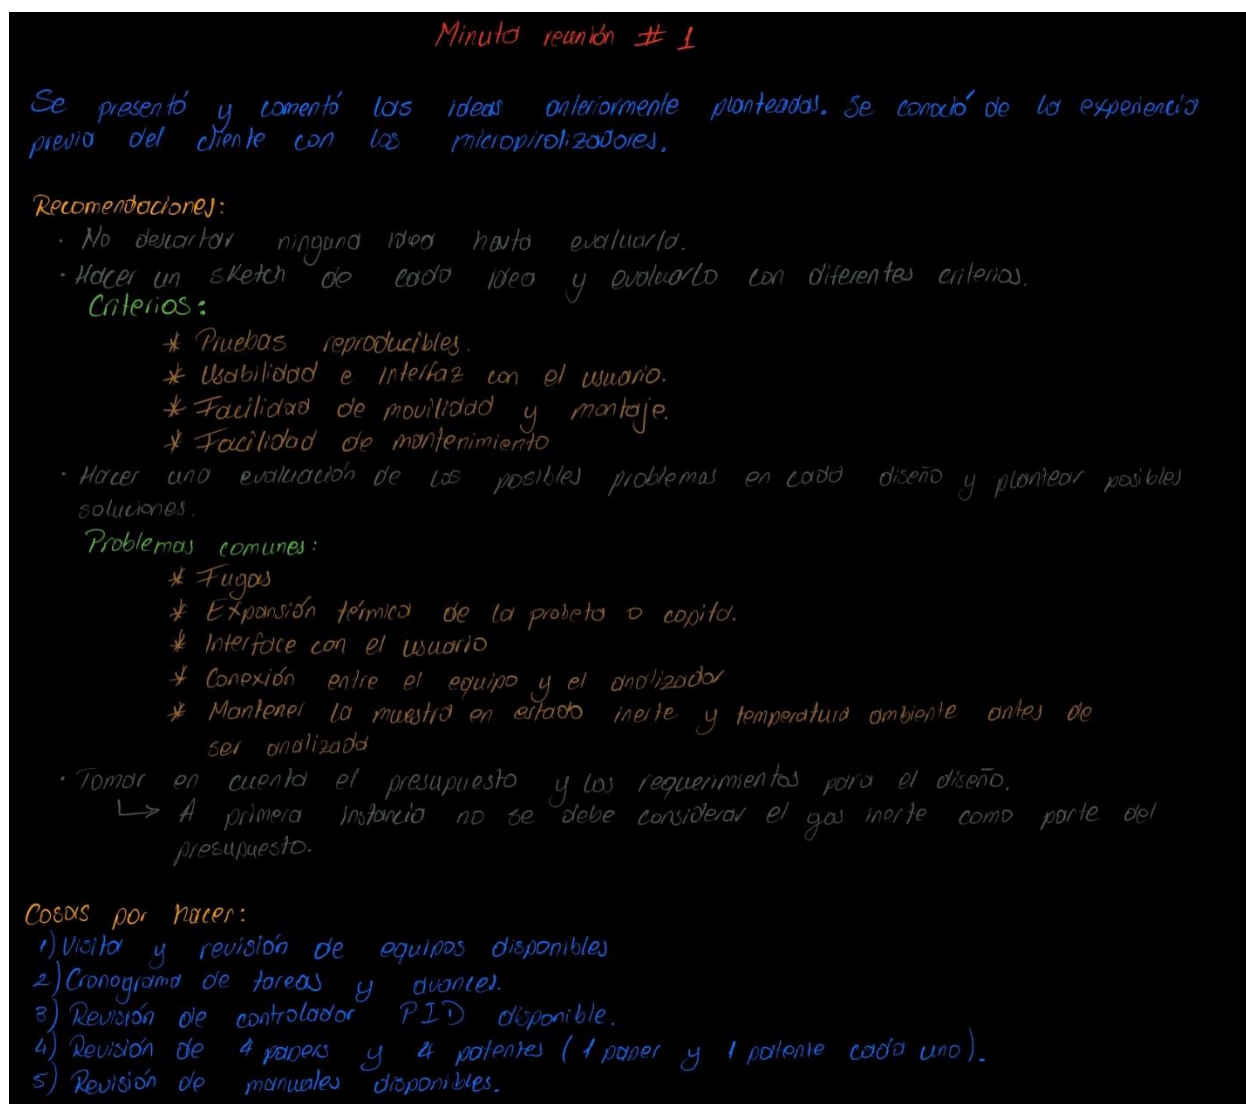 Minuta reunión # 1
Se presentó y comentó las ideas anteriormente planteadas. Se conoció de la experiencia
previa del cliente con los micropirolizadores.
Recomendaciones:
· No descartar ninguna idea hasta evaluarla.
· Hacer un sketch de cada idea y evaluarlo con diferentes criterios.
Criterios:
* Pruebas reproducibles.
* Usabilidad e interfaz con el usuario.
* Facilidad de movilidad y montaje.
* Facilidad de mantenimiento
· Hacer una evaluación de los posibles problemas en cada diseño y plantear posibles
soluciones.
Problemas comunes:
* Fugas
* Expansión térmica de la probeta o copita.
* Interface con el usuario
* Conexión entre el equipo y el analizador
* Mantener la muestra en estado inerte y temperatura ambiente antes de
ser analizada
· Tomar en cuenta el presupuesto y los requerimientos para el diseño.
↳ A primera instancia no se debe considerar el gas inerte como parte del
presupuesto.
Cosas por hacer:
1) Visita y revisión de equipos disponibles
2) Cronograma de tareas y avances.
3) Revisión de controlador PID disponible.
4) Revisión de 4 papers y 4 patentes (1 paper y 1 patente cada uno).
5) Revisión de manuales disponibles.